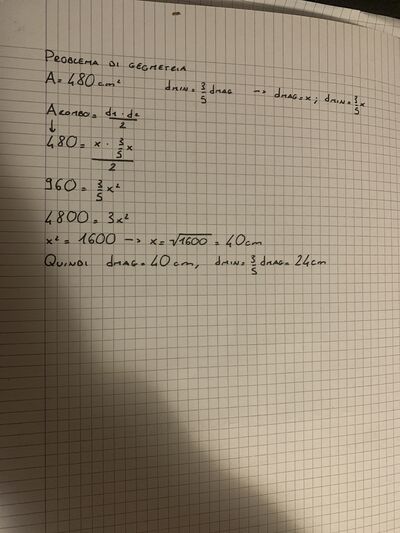 PROBLEMA DI GEOMETRIA
A = 480 cm² dMIN = 3/5 dMAG → dMAG = x ; dMIN = 3/5 x
A ROMBO = d1 · d2 / 2
↓
480 = x · 3/5 x / 2
960 = 3/5 x²
4800 = 3x²
x² = 1600 → x = √1600 = 40 cm
QUINDI dMAG = 40 cm, dMIN = 3/5 dMAG = 24 cm